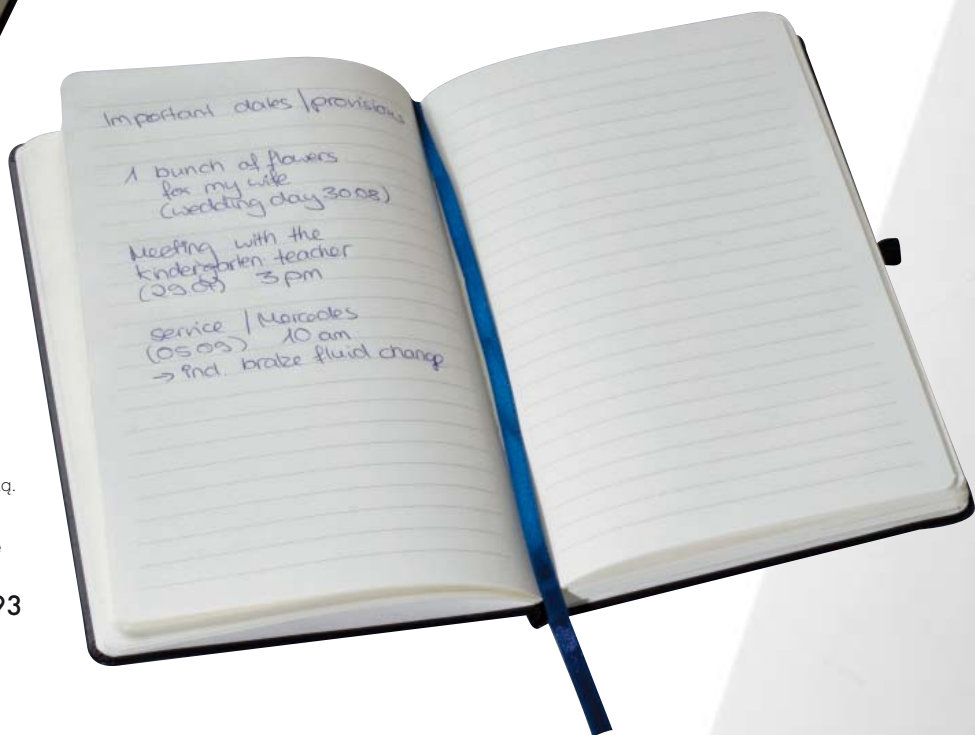 Important dates / provisions
1 bunch of flowers
for my wife
(wedding day 30.08)
Meeting with the
kindergarten teacher
(29.08) 3 pm
service / Mercedes
(05.09) 10 am
→ incl. brake fluid change
q.
e
93